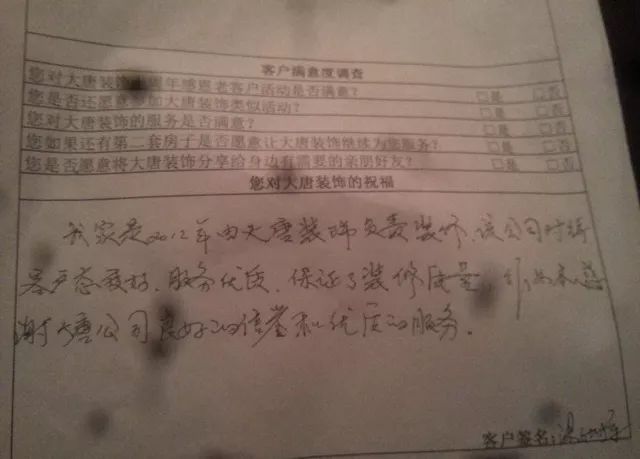 客户满意度调查
您对大唐装饰周年感恩老客户活动是否满意? □是 □否
您是否还愿意参加大唐装饰类似活动? □是 □否
您对大唐装饰的服务是否满意? □是 □否
您如果还有第二套房子是否愿意让大唐装饰继续为您服务? □是 □否
您是否愿意将大唐装饰分享给身边有需要的亲朋好友? □是 □否
您对大唐装饰的祝福
我家是2012年由大唐装饰负责装修,该公司对待
客户态度好、服务优质、保证了装修质量,感
谢大唐公司良好的信誉和优质的服务。
客户签名: